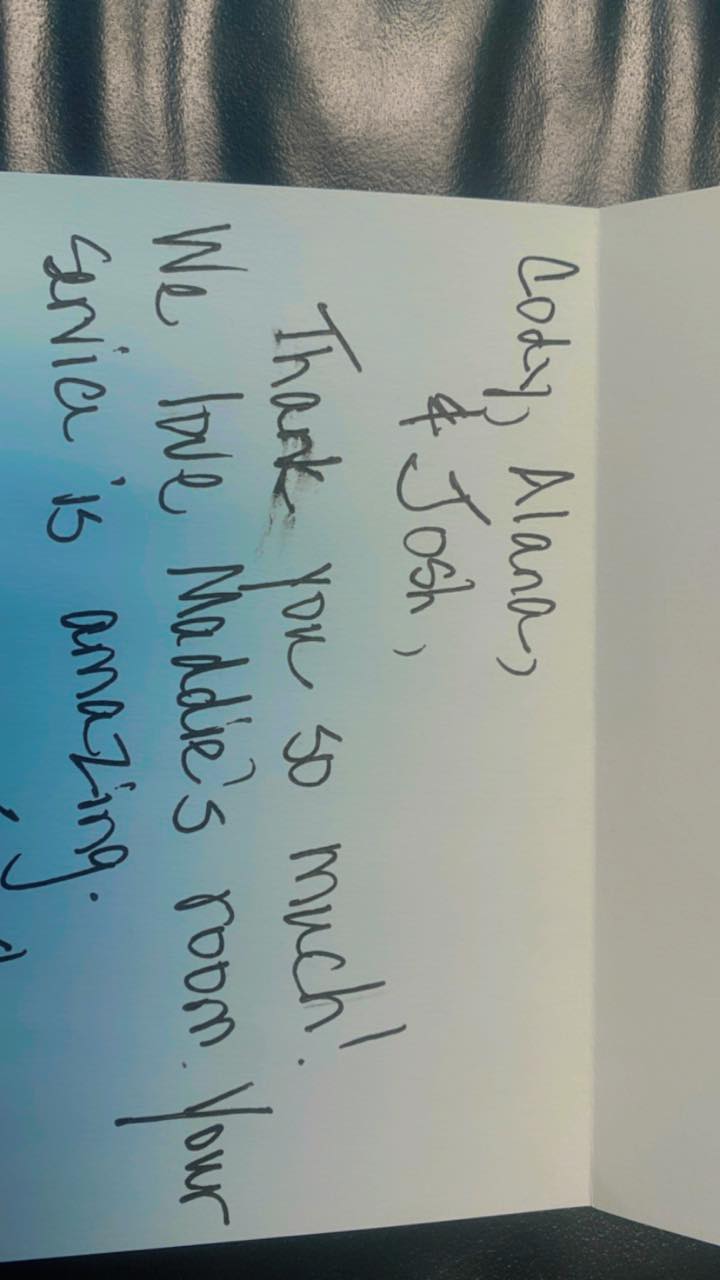 Cody, Alana,
& Josh,
Thank you so much!
We love Maddie's room. Your
service is amazing.